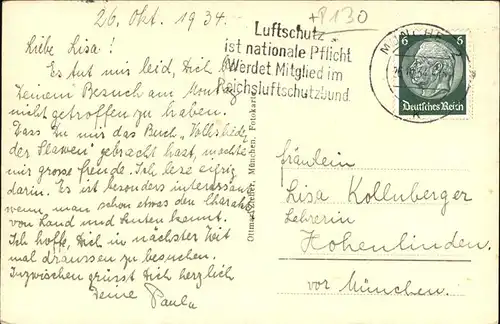 26. Okt. 1934.
+8130
Liebe Lisa!
Es tut mir leid, Dich bei
Deinem Besuch am Montag
nicht getroffen zu haben.
Dass Du mir das Buch "Volkslieder
der Slawen" gebracht hast, machte
mir grosse Freude. Ich lese eifrig
darin. Es ist besonders interessant
wenn man schon etwas den Charakter
von Land und Leuten kennt.
Ich hoffe, Dich in nächster Zeit
mal draussen zu besuchen.
Inzwischen grüsst Dich herzlich
Deine Paula
Luftschutz
ist nationale Pflicht
Werdet Mitglied im
Reichsluftschutzbund
MÜNCHEN
6 6
Deutsches Reich
Ottmar Zieher, München, Fotokarte
Fräulein
Lisa Kollnberger
Lehrerin
Hohenlinden.
vor München.